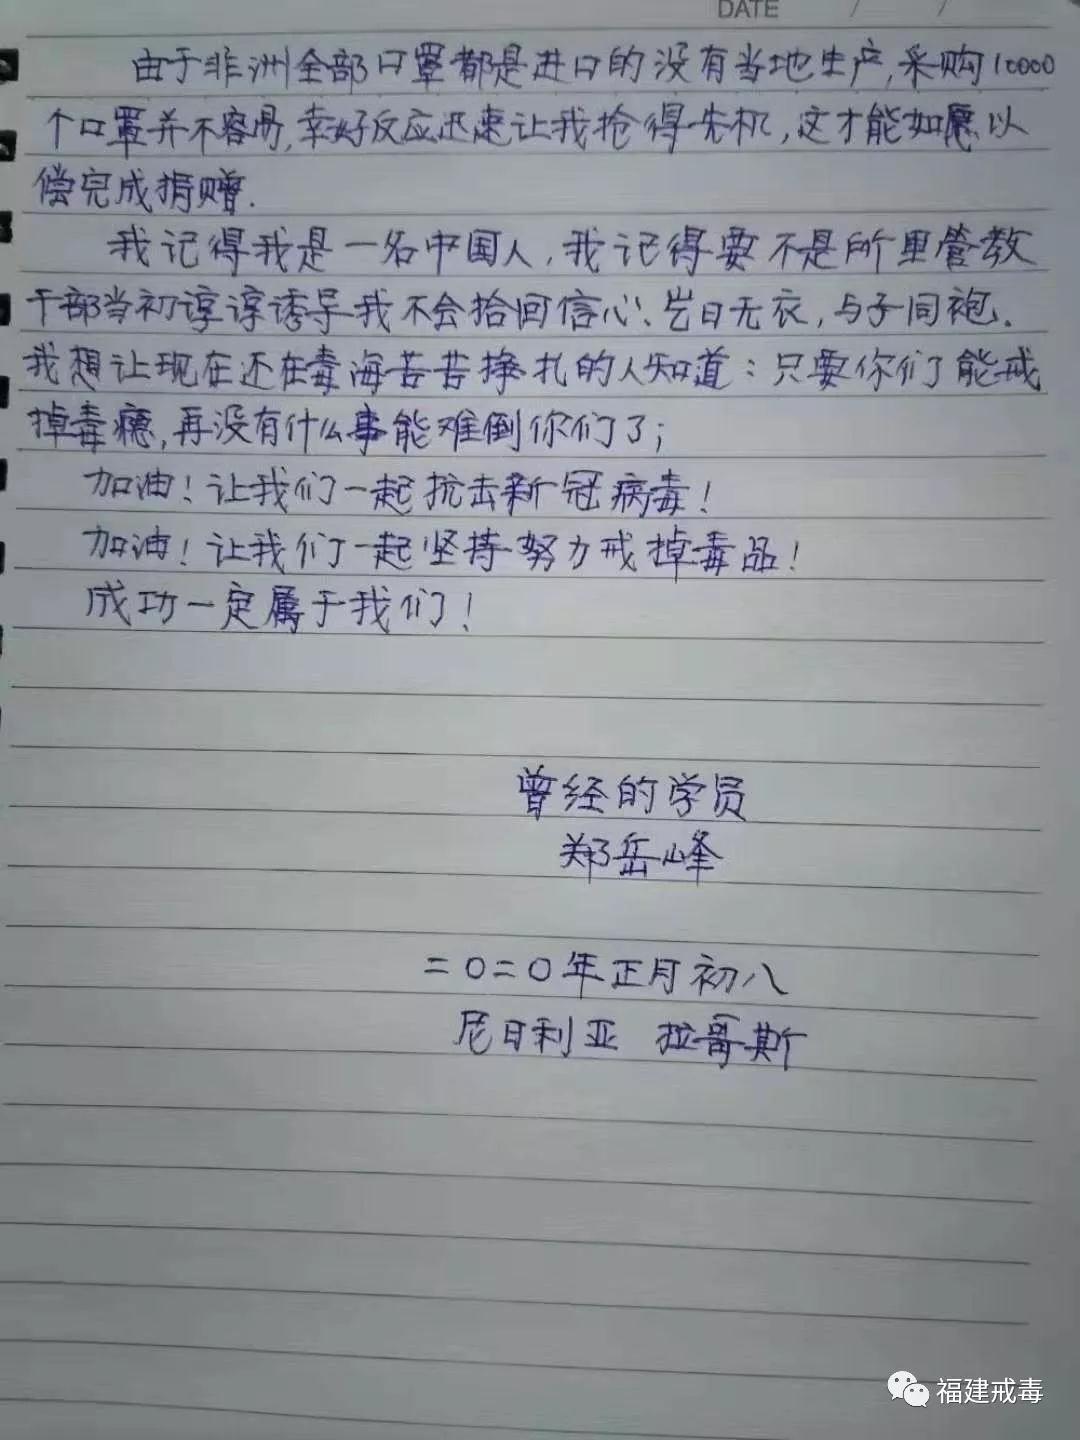 DATE / /
由于非洲全部口罩都是进口的没有当地生产,采购10000
个口罩并不容易,幸好反应迅速让我抢得先机,这才能如愿以
偿完成捐赠.
我记得我是一名中国人,我记得要不是所里管教
干部当初谆谆诱导我不会拾回信心、岂曰无衣,与子同袍.
我想让现在还在毒海苦苦挣扎的人知道:只要你们能戒
掉毒瘾,再没有什么事能难倒你们了;
加油!让我们一起抗击新冠病毒!
加油!让我们一起坚持努力戒掉毒品!
成功一定属于我们!
曾经的学员
郑岳峰
二〇二〇年正月初八
尼日利亚 拉哥斯
福建戒毒